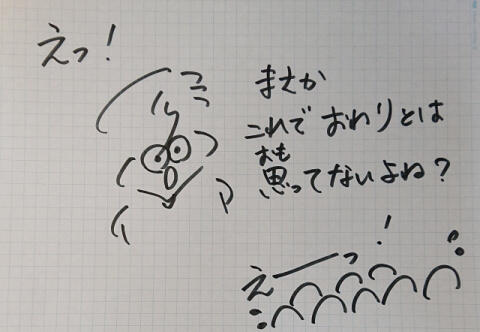 えっ！
まさか
これでおわりとは
おも
思ってないよね？
えーっ！